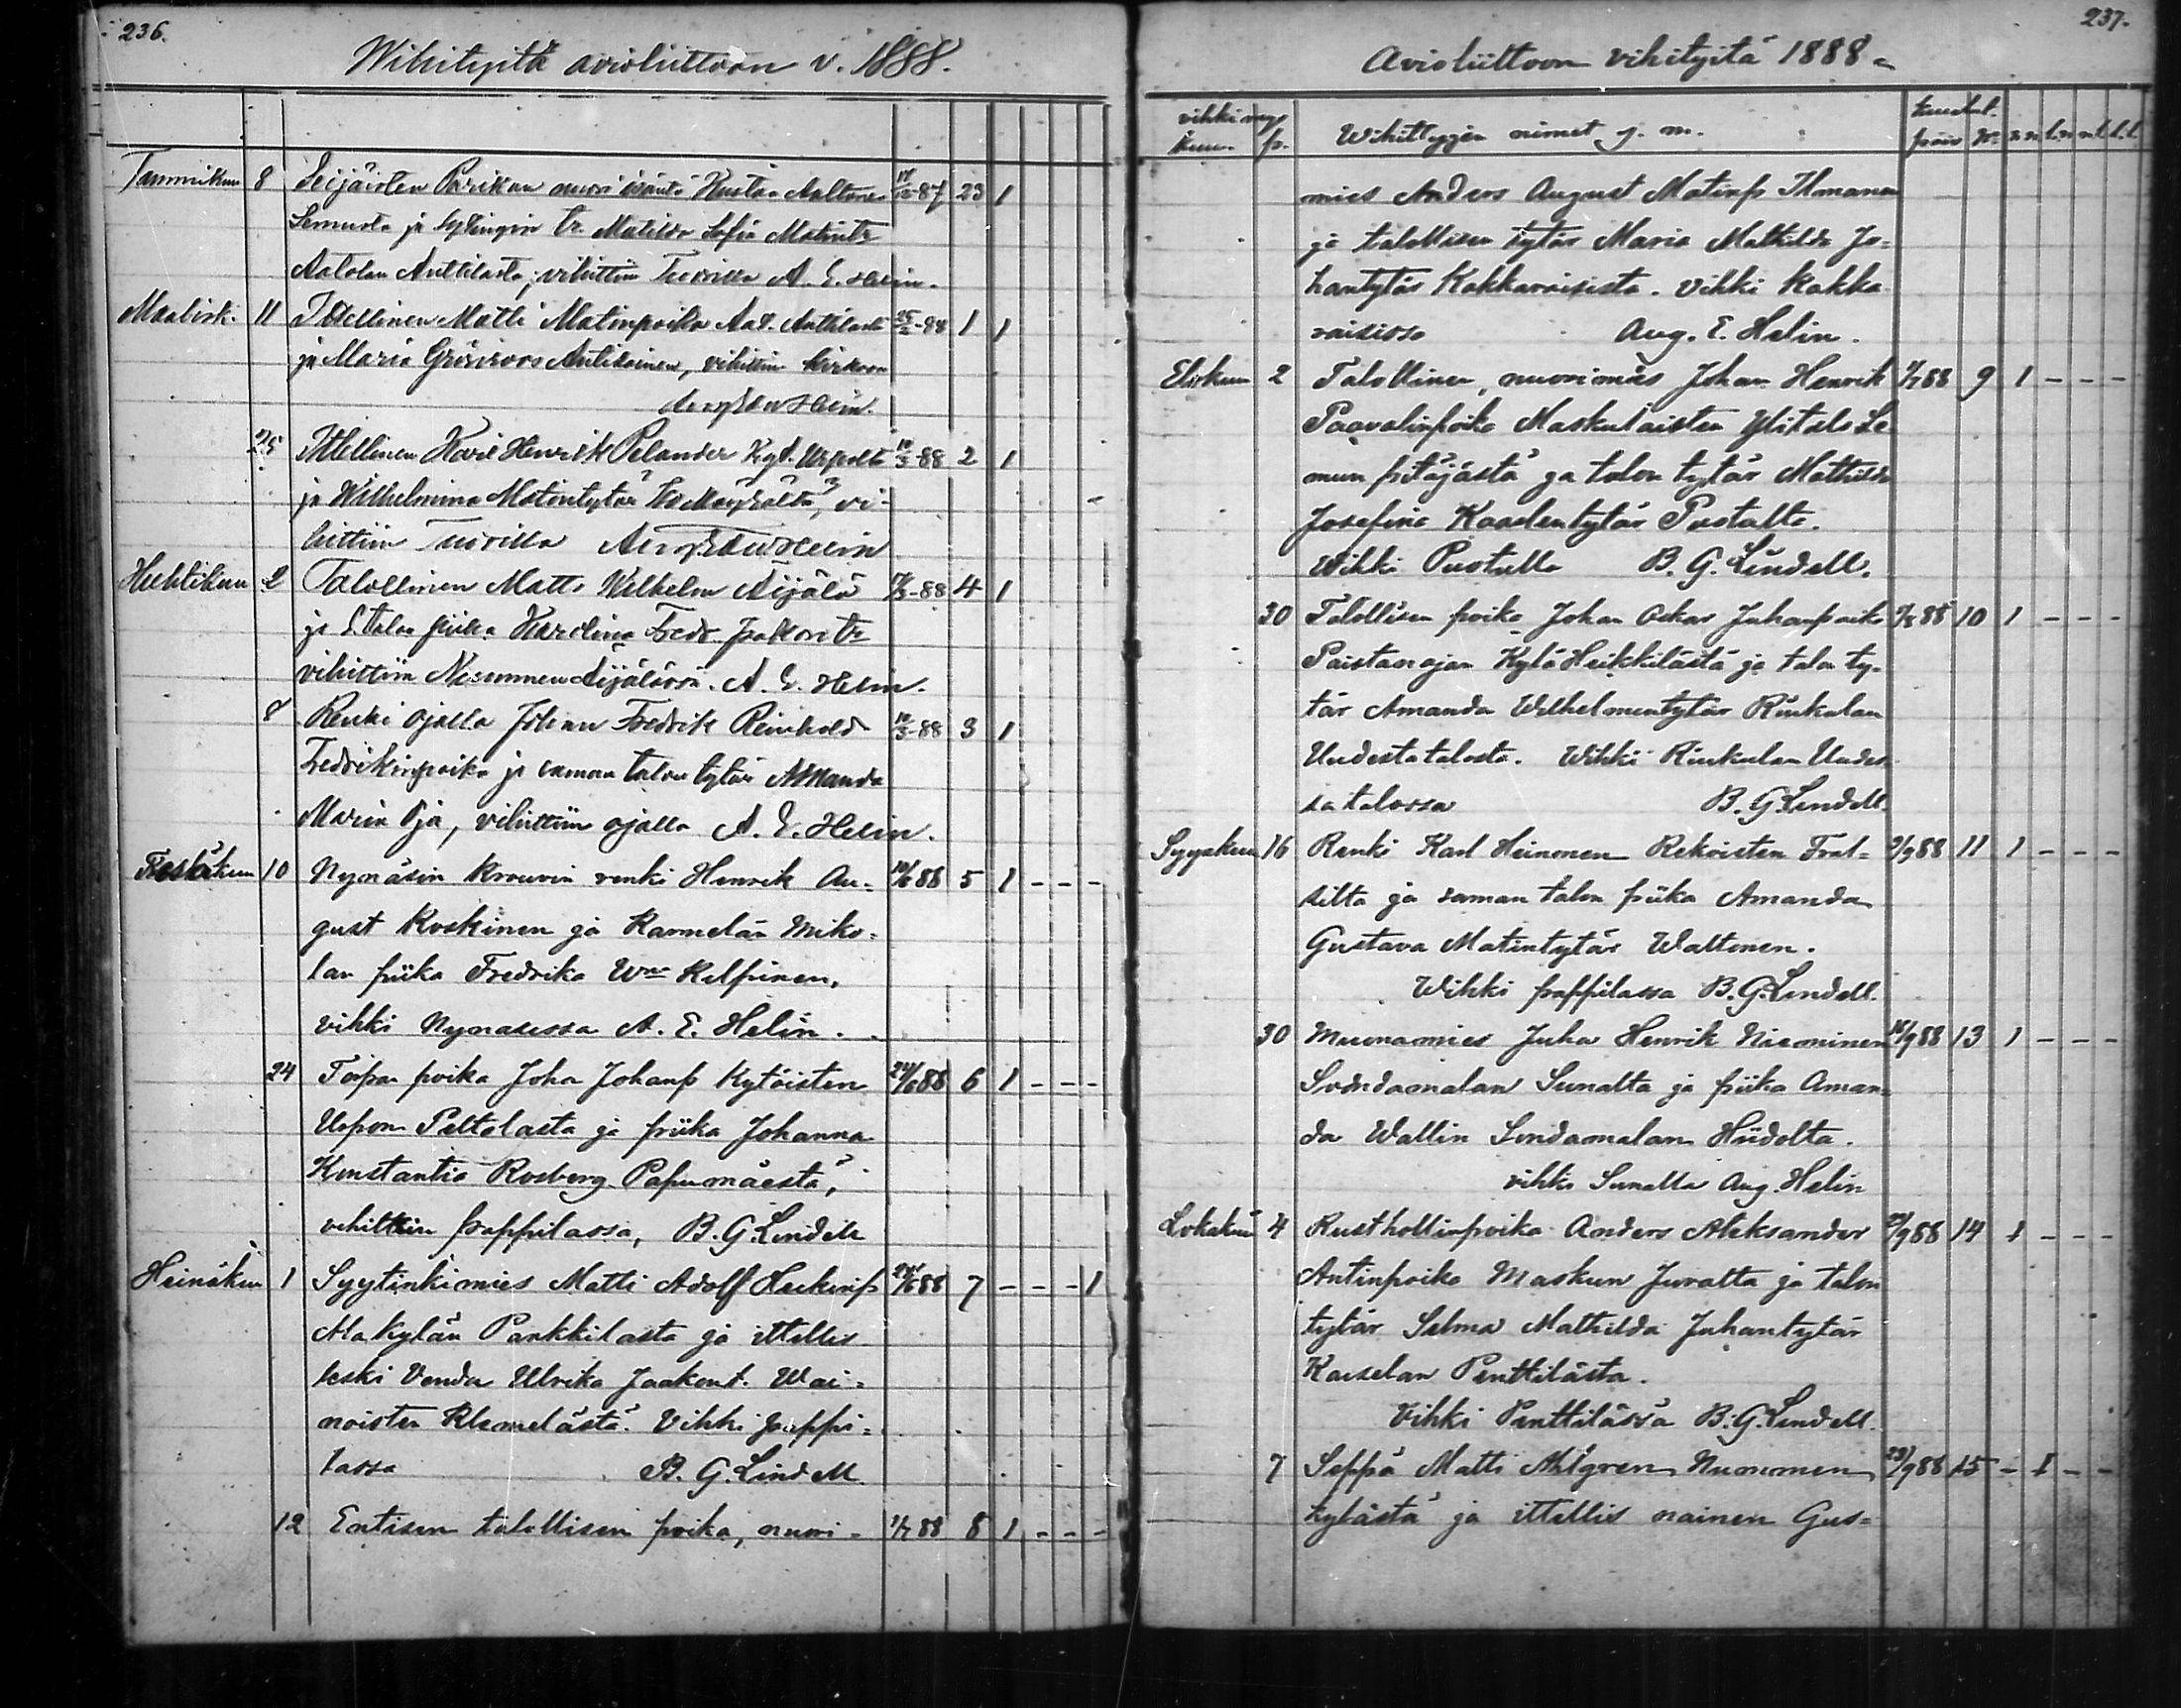 236.
Wihityitä avioliittoon v. 1888.
Tammikuu 8 Seijäisten Parikan nuori isäntä Kustaa Aaltonen 18/12-87 23 1
Lemusta ja sytingin tr. Matilda Sofia Matintr
Aatolan Anttilasta, vihittiin A. E. Helin.
Maalisk. 11 Itsellinen Matti Matinpoika Anttilasta 25/2-88 1 1
ja Maria Grönroos Anttilainen, vihittiin kirkossa
Helin.
25 Ittellinen Karl Henrik Pelander 10/3-88 2 1
ja Wilhelmina Matintytär vi-
hittiin Helin
Huhtikuu 2 Talollinen Matts Wilhelm Äijälä 17/3-88 4 1
ja S. talon piika Karolina Fredr.
vihittiin Äijälässä. A. E. Helin.
8 Renki Ojalla Johan Fredrik Reinhold 10/3-88 3 1
Fredrikinpoika ja saman talon tytär Amanda
Maria Oja, vihittiin Ojalla A. E. Helin.
Kesäkuu 10 Nynäsin krouvin renki Henrik Au- 10/6 88 5 1 - - -
gust Koskinen ja Karmelan Miko-
lan piika Fredrika Wna Kelpinen,
vihki Nynäsissä A. E. Helin.
24 Torpan poika Joha Johanp Kytöisten 24/6 88 6 1 - - -
Uspon Peltolasta ja piika Johanna
Konstantia Rosberg Papumäestä,
vihittiin pappilassa, B. G. Lindell
Heinäkuu 1 Syytinkimies Matti Adolf Heikinp 24/6 88 7 - - - 1
Alakylän Pankkilasta ja ittellis
leski Vendu Ulrika Jaakont. Wai-
noisten Klemelästä. Vihki pappi-
lassa B. G. Lindell.
12 Entisen talollisen poika, nuori- 1/7 88 8 1 - - -
237.
Avioliittoon vihityitä 1888
vihkimys kuulut.
kuu. p. Wihittyjen nimet y. m. päiv No n.n l.n n.l. l.l.
mies Anders August Matinp Ilmanen
ja talollisen tytär Maria Mathilda Jo-
hantytär Kakkaraisista. Vihki Kakka
raisissa Aug. E. Helin.
Elokuu 2 Talollinen, nuorimies Johan Henrik 1/7 88 9 1 - - -
Paavalinpoika Maskulaisten Ylitalo Le
mun pitäjästä ja talon tytär Mathilda
Josefina Kaarlentytär Pustalta.
Wihki Pustalla B. G. Lindell.
30 Talollisen poika Johan Oskar Juhanpoika 88 10 1 - - -
Paistanojan Kylä Heikkilästä ja talon ty-
tär Amanda Wilhelmentytär Riukulan
Uudestatalosta. Wihki Riukulan Uudes
sa talossa B. G. Lindell
Syyskuu 16 Renki Karl Heinonen Rekoisten Frat- 2/9 88 11 1 - - -
silta ja saman talon piika Amanda
Gustava Matintytär Waltonen.
Wihki pappilassa B. G. Lindell.
30 Muonamies Juha Henrik Nieminen 16/9 88 13 1 - - -
Sondamalan Sunalta ja piika Aman-
da Wallin Sondamalan Hiidolta.
vihki Sunalla Aug. Helin
Lokakuu 4 Rusthollinpoika Anders Aleksander /9 88 14 1 - - -
Antinpoika Maskun Juvalta ja talon
tytär Selma Mathilda Juhantytär
Kaiselan Penttilästä.
Vihki Penttilässä B. G. Lindell.
7 Seppä Matti Ahlgren Nummen 23/9 88 15 - 1 - -
kylästä ja ittellis nainen Gus-